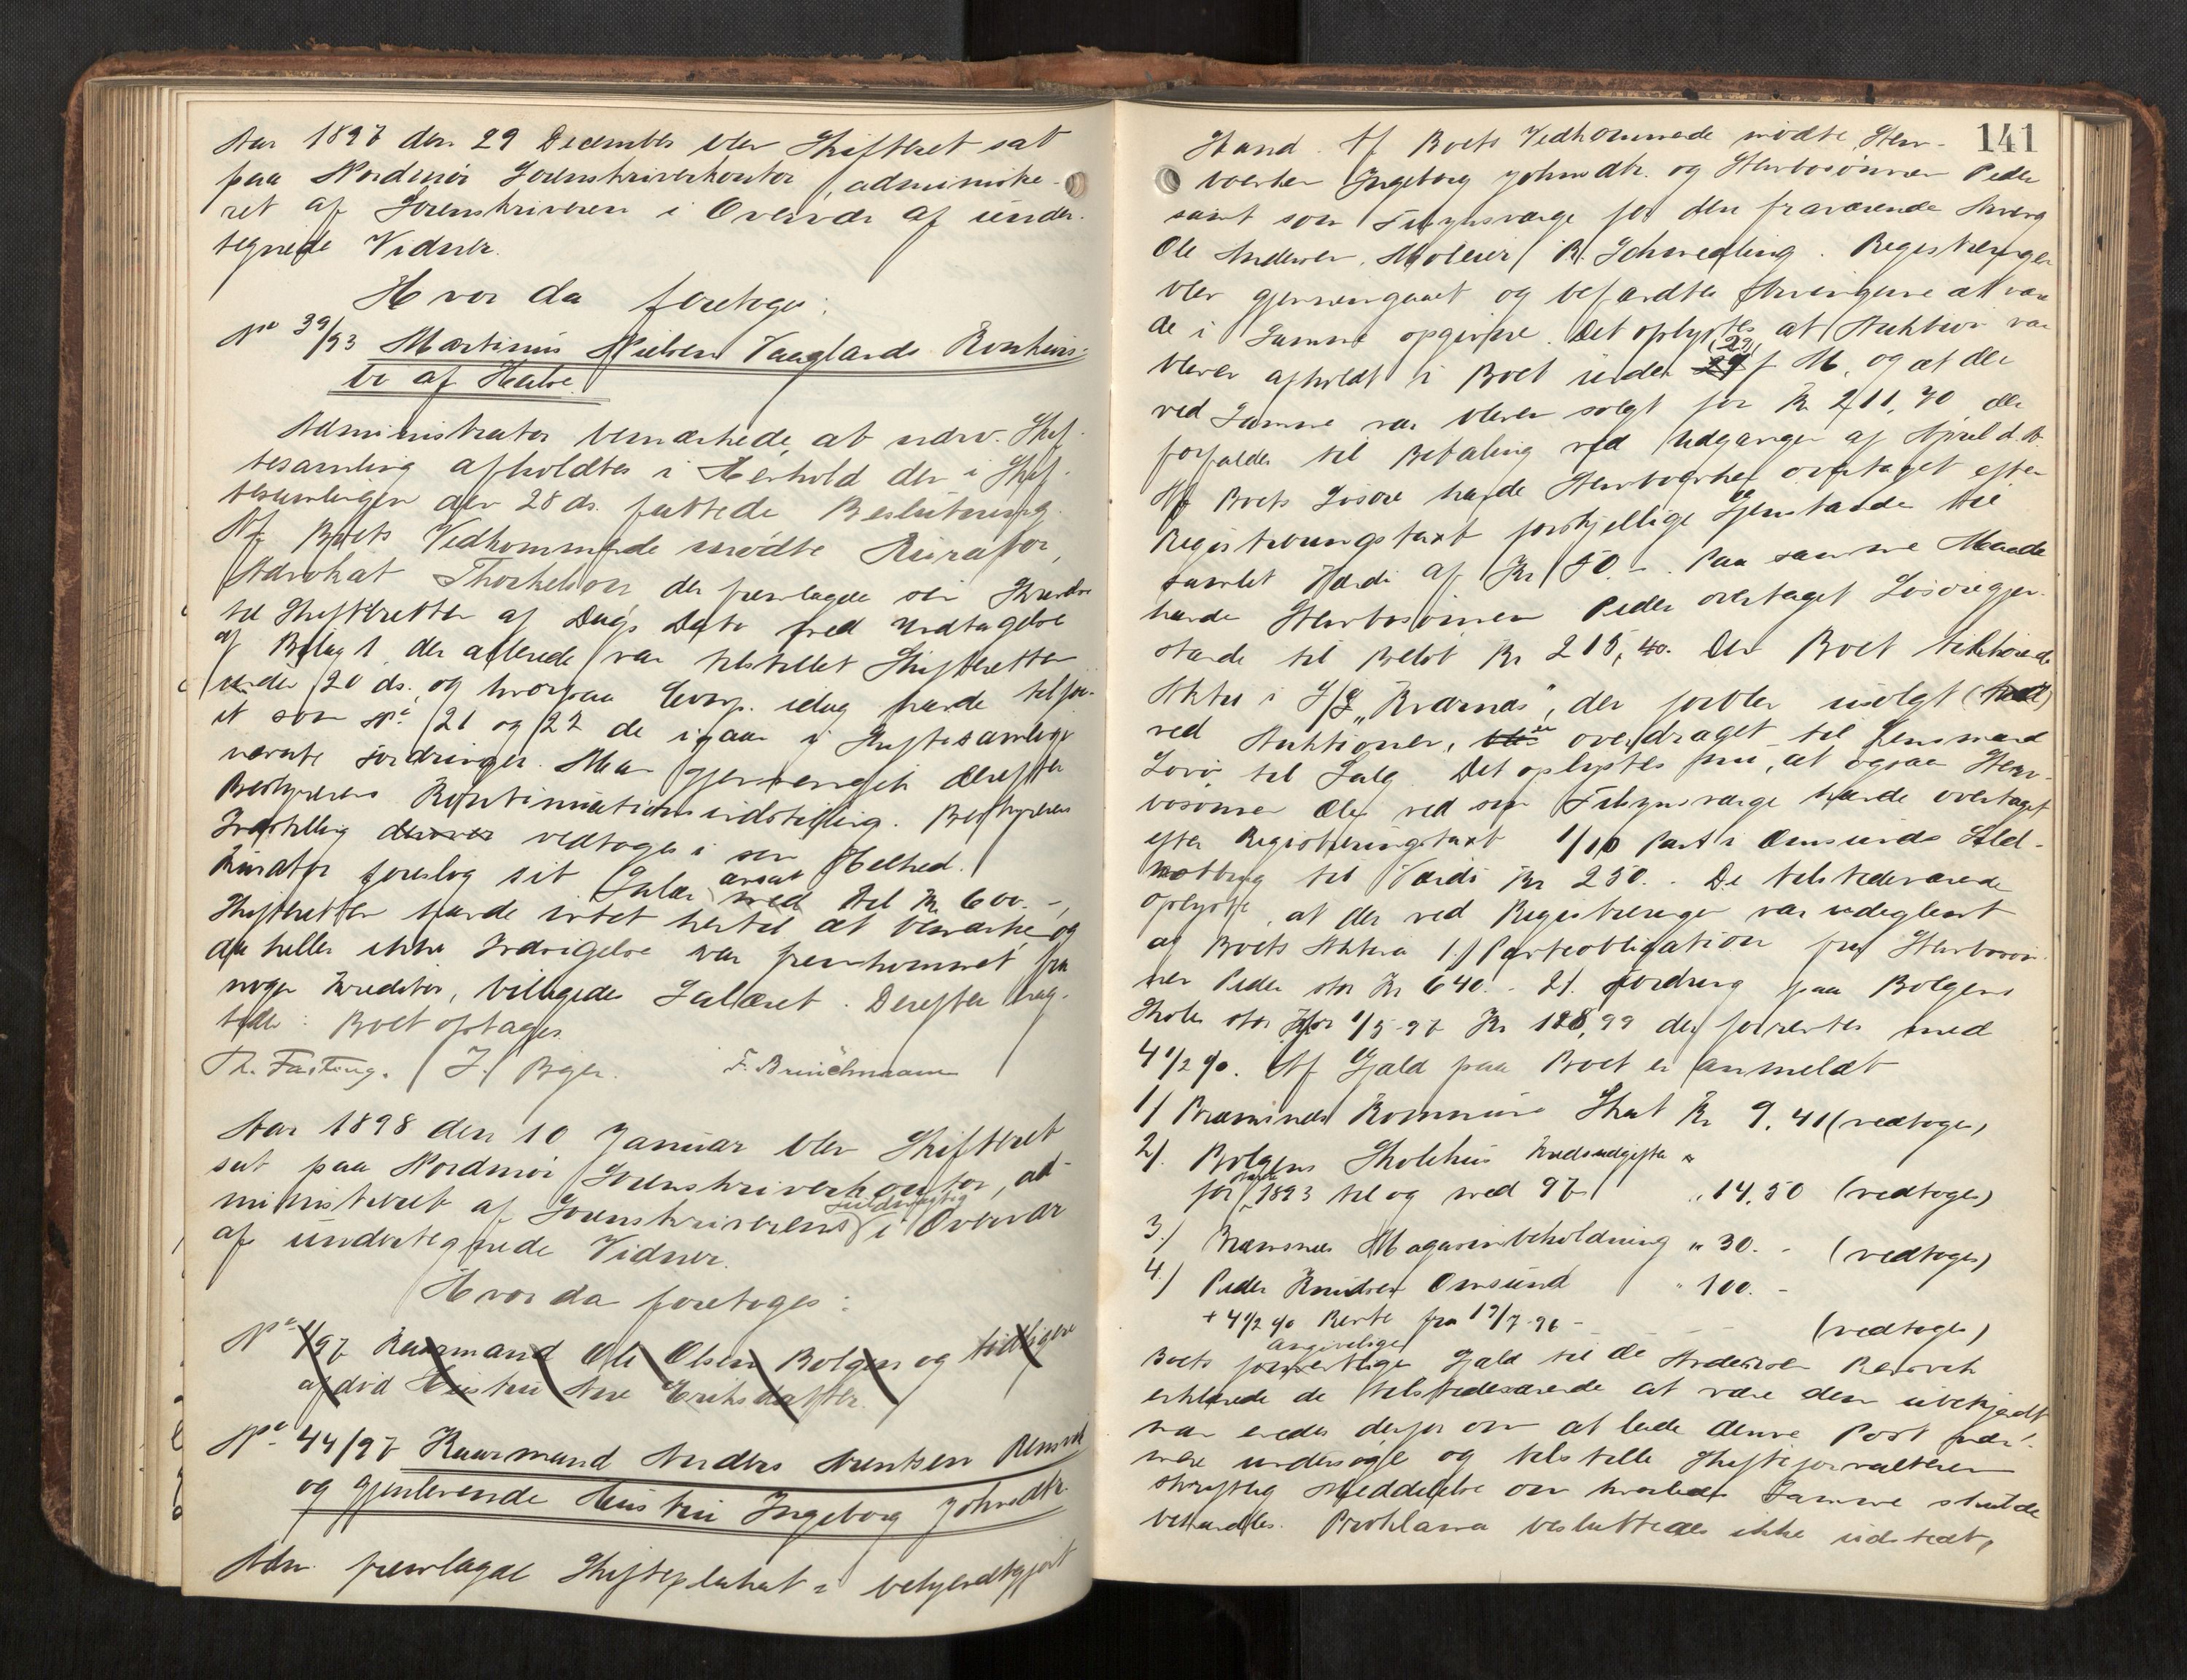 Aar 1897 den 29 December blev Skifteret sat
paa Nordmør Sorenskriverkontor, administre-
ret af Sorenskriveren i Overvær af under-
tegnede Vidner.
Hvor da foretoges:
No 39/93 Martinus Nielsen Vaaglands Konkurs-
bo af Halse.
Administrator bemærkede, at nærv. Skif-
tesamling afholdtes i Henhold den i Skif-
tesamlingen den 28 ds. fattede Beslutning.
Af Boets Vedkommende mødte Kurator,
Advokat Thorkelson der fremlagde sin
til Skifteretten af Dags Dato med Undtagelse
af Bilag 1 der allerede var tilstillet Skifteretten
under 20 ds. og hvorpaa idag havde tilføi-
et som No 21 og 22 de igaar i Skiftesamlingen
nævnte Fordringer. Man gjennemgik derefter
Bestyrerens Kontinuationsindstilling. Bestyrerens
Indstilling vedtoges i sin Helhed.
Kurator foreslog sit Salær ansat til Kr 600.-,
Skifteretten havde intet hertil at bemærke og
da heller ikke Indsigelse var fremkommet fra
nogen Kreditor, bilagedes Salæret. Derefter
: Boet optages.
Th. Fasting. J. Bøjer. F. Brüchmann
Aar 1898 den 10 Januar blev Skifteret
sat paa Nordmør Sorenskriverkontor, ad-
ministreret af Sorenskriverens Fuldmægtig i Overvær
af undertegnede Vidner.
Hvorda foretoges:
No 1/97 Kaarmand Ole Olsen Bolgen og tidligere
afdød Hustru Ane Eriksdatter.
No 44/97 Kaarmand Anders Arentsen Remsvik
og gjenlevende Hustru Ingeborg Johnsdtr.
Adm. fremlagde Skifteplakat i bekjendtgjort
141
Stand. Af Boets Vedkommende mødte Sterv-
boenken Ingeborg Johnsdtr. og Stervbosønnen Peder
samt som Tilsynsværge for den fraværende Arving
Ole Andersen, R. Schwedling. Registreringen
blev gjennemgaaet og befandtes Arvingerne at være
de i Samme opgivne. Det oplystes at Auktion var
bleven afholdt i Boet under 29 f. M. og at der
ved Samme var bleven solgt for Kr 211,70 der
forfalder til Betaling ved Udgangen af April d. A.
Af Boets Løsøre havde Stervboenken overtaget efter
Registreringstaxt forskjellige Gjenstande til
samlet Værdi af Kr 50.-. Paa samme Maade
havde Stervbosønnen Peder overtaget Løsøregjen-
stande til Beløb Kr 215,40. Den Boet tilhørende
Aktie i S/S „Kværnæs“, der forblev usolgt
ved Auktionen, er overdraget til Lensmand
til Salg. Det oplystes nu, at ogsaa Sterv-
bosønnen Ole ved sin Tilsynsværge havde overtaget
efter Registreringstaxt 1/10 Part i Omsunds Sild-
notbrug til Værdi Kr 250.-. De tilstedeværende
oplyste, at der ved Registreringen var udeglemt
af Boets Aktiva 1/ Panteobligation fra Stervbosøn-
nen Peder stor Kr 640.- 2/. Fordring paa Bolgens
Skole stor pr 1/5-97 Kr 128,99 der forrentes med
4 1/2 %. Af Gjæld paa Boet er anmeldt
1/ Bremsnes Kommune Skat Kr 9,41 (vedtoges)
2/. Bolgens Skolehus Kredsudgifter
for 1893 til og med 97 „ 14,50 (vedtoges)
3./ Bremsnes Magasinbeholdning „ 30.- (vedtoges)
4./ Peder Knudsen Omsund „ 100.-
+ 4 1/2 % Rente fra 19/7-96 - (vedtoges)
Boets angivelige Gjæld til Ole Andersen Remsvik
erklærede de tilstedeværende at være dem ubekjendt
man enedes derfor om at lade denne Post nær-
mere undersøge og tilstille Skifteforvalteren
skriftlig Meddelelse om hvorledes Samme skulde
behandles. Proklama besluttedes ikke udstedt,